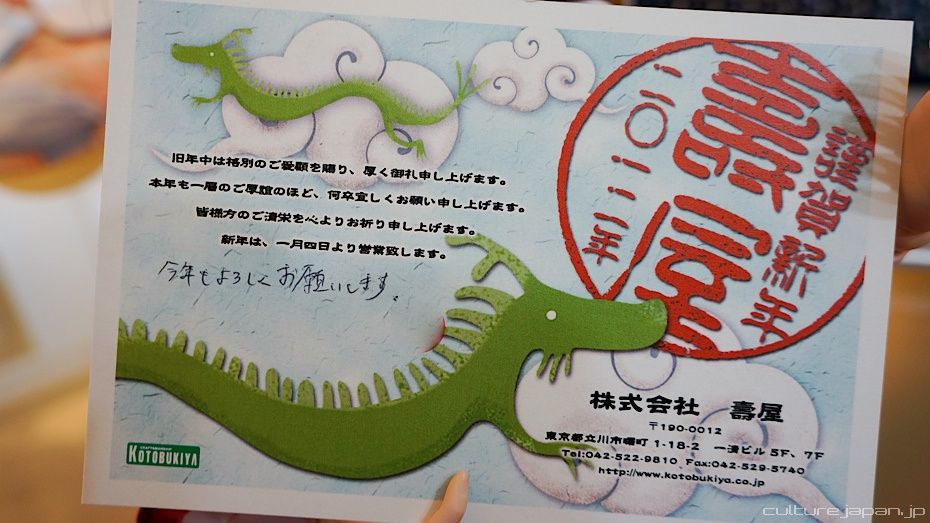 旧年中は格別のご愛顧を賜り、厚く御礼申し上げます。
本年も一層のご厚誼のほど、何卒宜しくお願い申し上げます。
皆様方のご清栄を心よりお祈り申し上げます。
新年は、一月四日より営業致します。
今年もよろしくお願いします。
謹賀新年
壽屋
二〇一二年
株式会社 壽屋
〒190-0012
東京都立川市曙町 1-18-2 一清ビル 5F、7F
Tel:042-522-9810 Fax:042-529-5740
http://www.kotobukiya.co.jp
CRAFTSMANSHIP
KOTOBUKIYA
culturejapan.jp